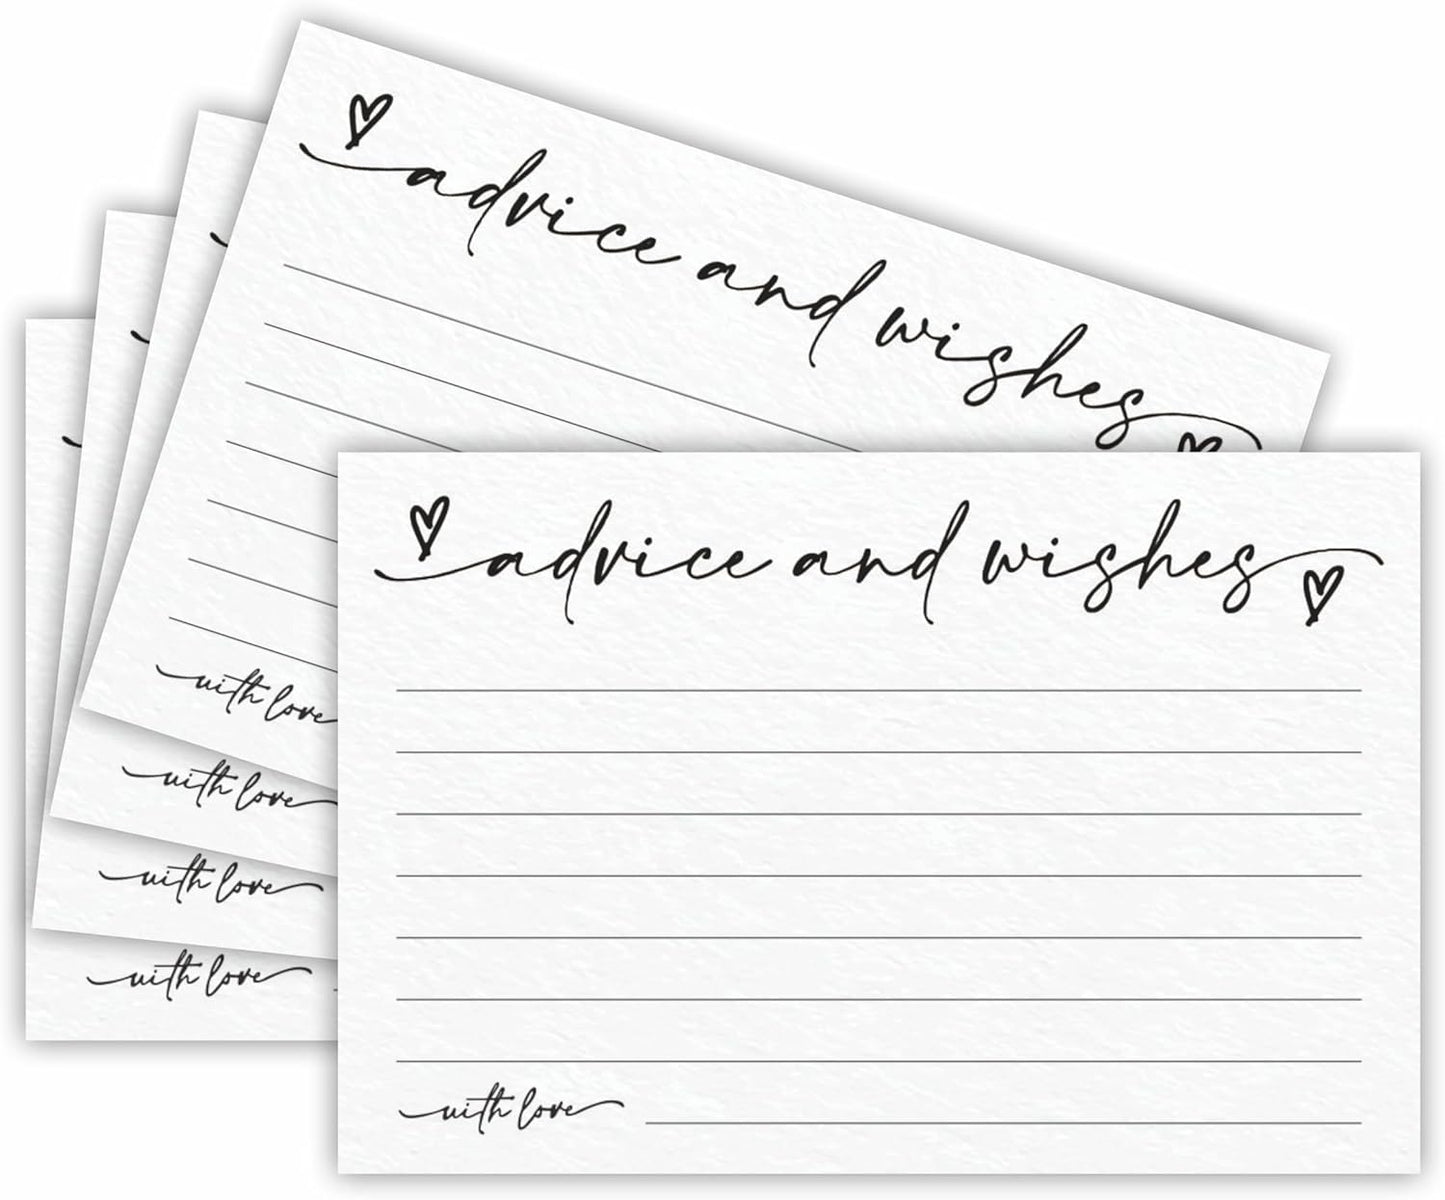 advice and wishes
with love
with love
with love
with love
advice and wishes
with love